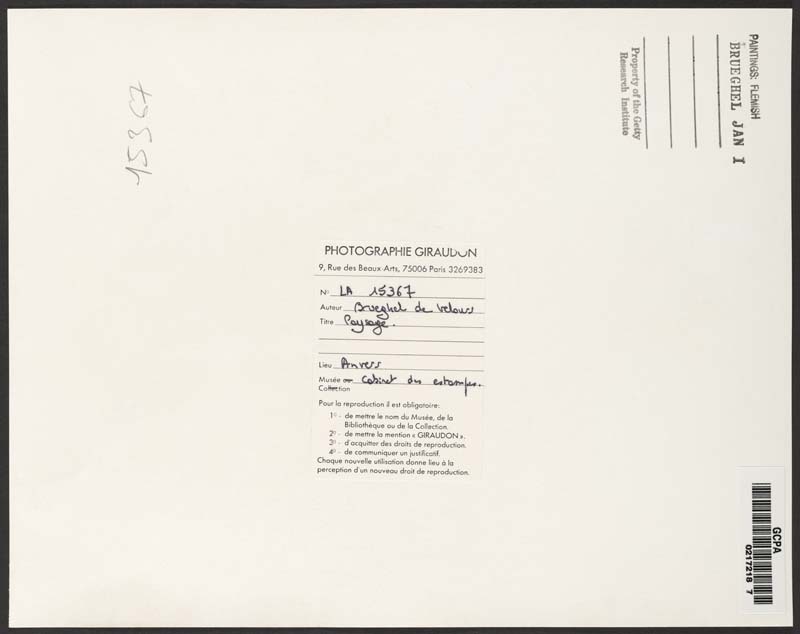 15367
PAINTINGS: FLEMISH
BRUEGHEL JAN I
Property of the Getty
Research Institute
PHOTOGRAPHIE GIRAUDON
9, Rue des Beaux-Arts, 75006 Paris 3269383
No LA 15367
Auteur Brueghel de Velours
Titre Paysage.
Lieu Anvers
Musée ou Cabinet des estampes.
Collection
Pour la reproduction il est obligatoire:
1o - de mettre le nom du Musée, de la
Bibliothèque ou de la Collection.
2o - de mettre la mention « GIRAUDON ».
3o - d'acquitter des droits de reproduction.
4o - de communiquer un justificatif.
Chaque nouvelle utilisation donne lieu à la
perception d'un nouveau droit de reproduction.
GCPA
0217218 7